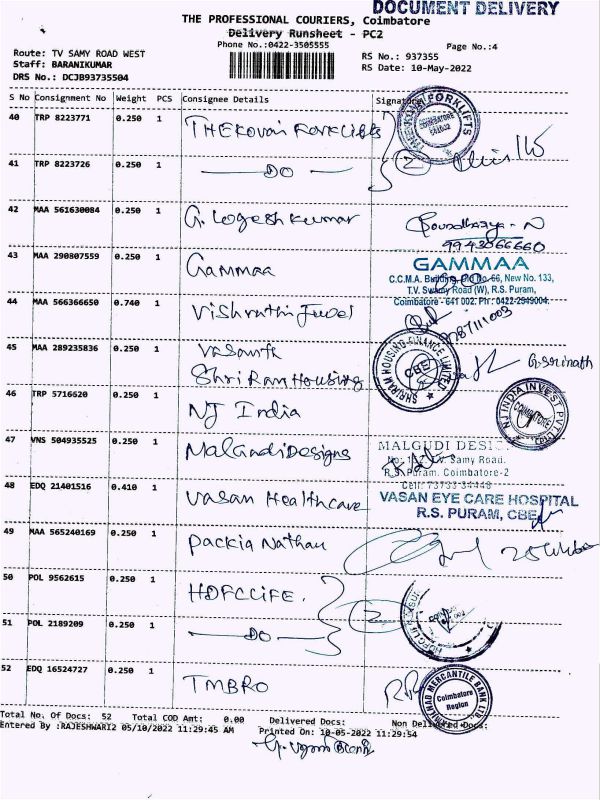 DOCUMENT DELIVERY
THE PROFESSIONAL COURIERS, Coimbatore
Delivery Runsheet - PC2
Phone No.:0422-3505555
Page No.:4
Route: TV SAMY ROAD WEST
Staff: BARANIKUMAR
RS No.: 937355
DRS No.: DCJB93735504
RS Date: 10-May-2022
S No Consignment No Weight PCS Consignee Details Signature
40 TRP 8223771 0.250 1 THEKovai Forklifts
THE KOVAI FORKLIFTS COIMBATORE 641002
41 TRP 8223726 0.250 1 DO 2
42 MAA 561630084 0.250 1 G. Logesh kumar
Soundharya - N
9943066660
43 MAA 290807559 0.250 1 Gammaa
GAMMAA
C.C.M.A. Building, Old No. 66, New No. 133,
T.V. Swamy Road (W), R.S. Puram,
Coimbatore - 641 002. Ph : 0422-2549004.
44 MAA 566366650 0.740 1 Vishruthi Juvel
45 MAA 289235836 0.250 1 Vasanth
Shri Ram Housing
SHRIRAM HOUSING FINANCE LIMITED CBE
G. Srinath
46 TRP 5716620 0.250 1 NJ India
NJ INDIA INVEST PVT LTD COIMBATORE
47 VNS 504935525 0.250 1 Malgudi Designs
MALGUDI DESI
Samy Road.
R.S. Puram. Coimbatore-2
Cell: 73733-34448
48 EDQ 21401516 0.410 1 Vasan Healthcare
VASAN EYE CARE HOSPITAL
R.S. PURAM, CBE
49 MAA 565240169 0.250 1 Packia Nathan
50 POL 9562615 0.250 1 HDFCLIFE.
2
51 POL 2189209 0.250 1 DO
52 EDQ 16524727 0.250 1 TMBRO
MERCANTILE BANK LTD Coimbatore Region
Total No. Of Docs: 52 Total COD Amt: 0.00 Delivered Docs: Non Delivered Docs:
Entered By :RAJESHWARI2 05/10/2022 11:29:45 AM Printed On: 10-05-2022 11:29:54